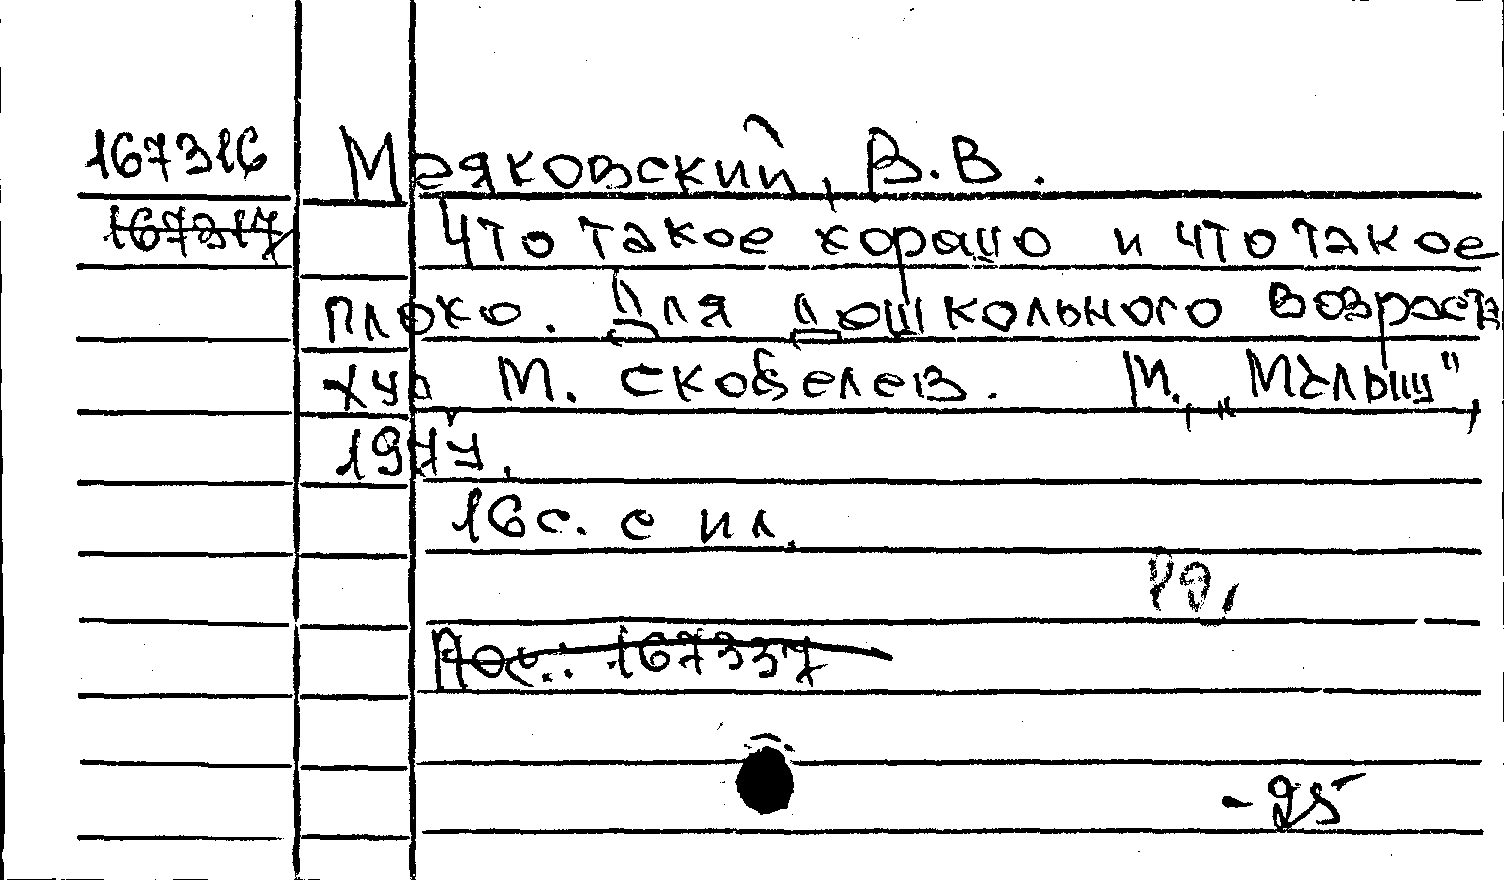 167316 Маяковский, В.В.
167317 Что такое хорошо и что такое
плохо. Для дошкольного возраста
худ М. Скобелев. М., „Малыш",
1977.
16с. с ил.
167337
-25